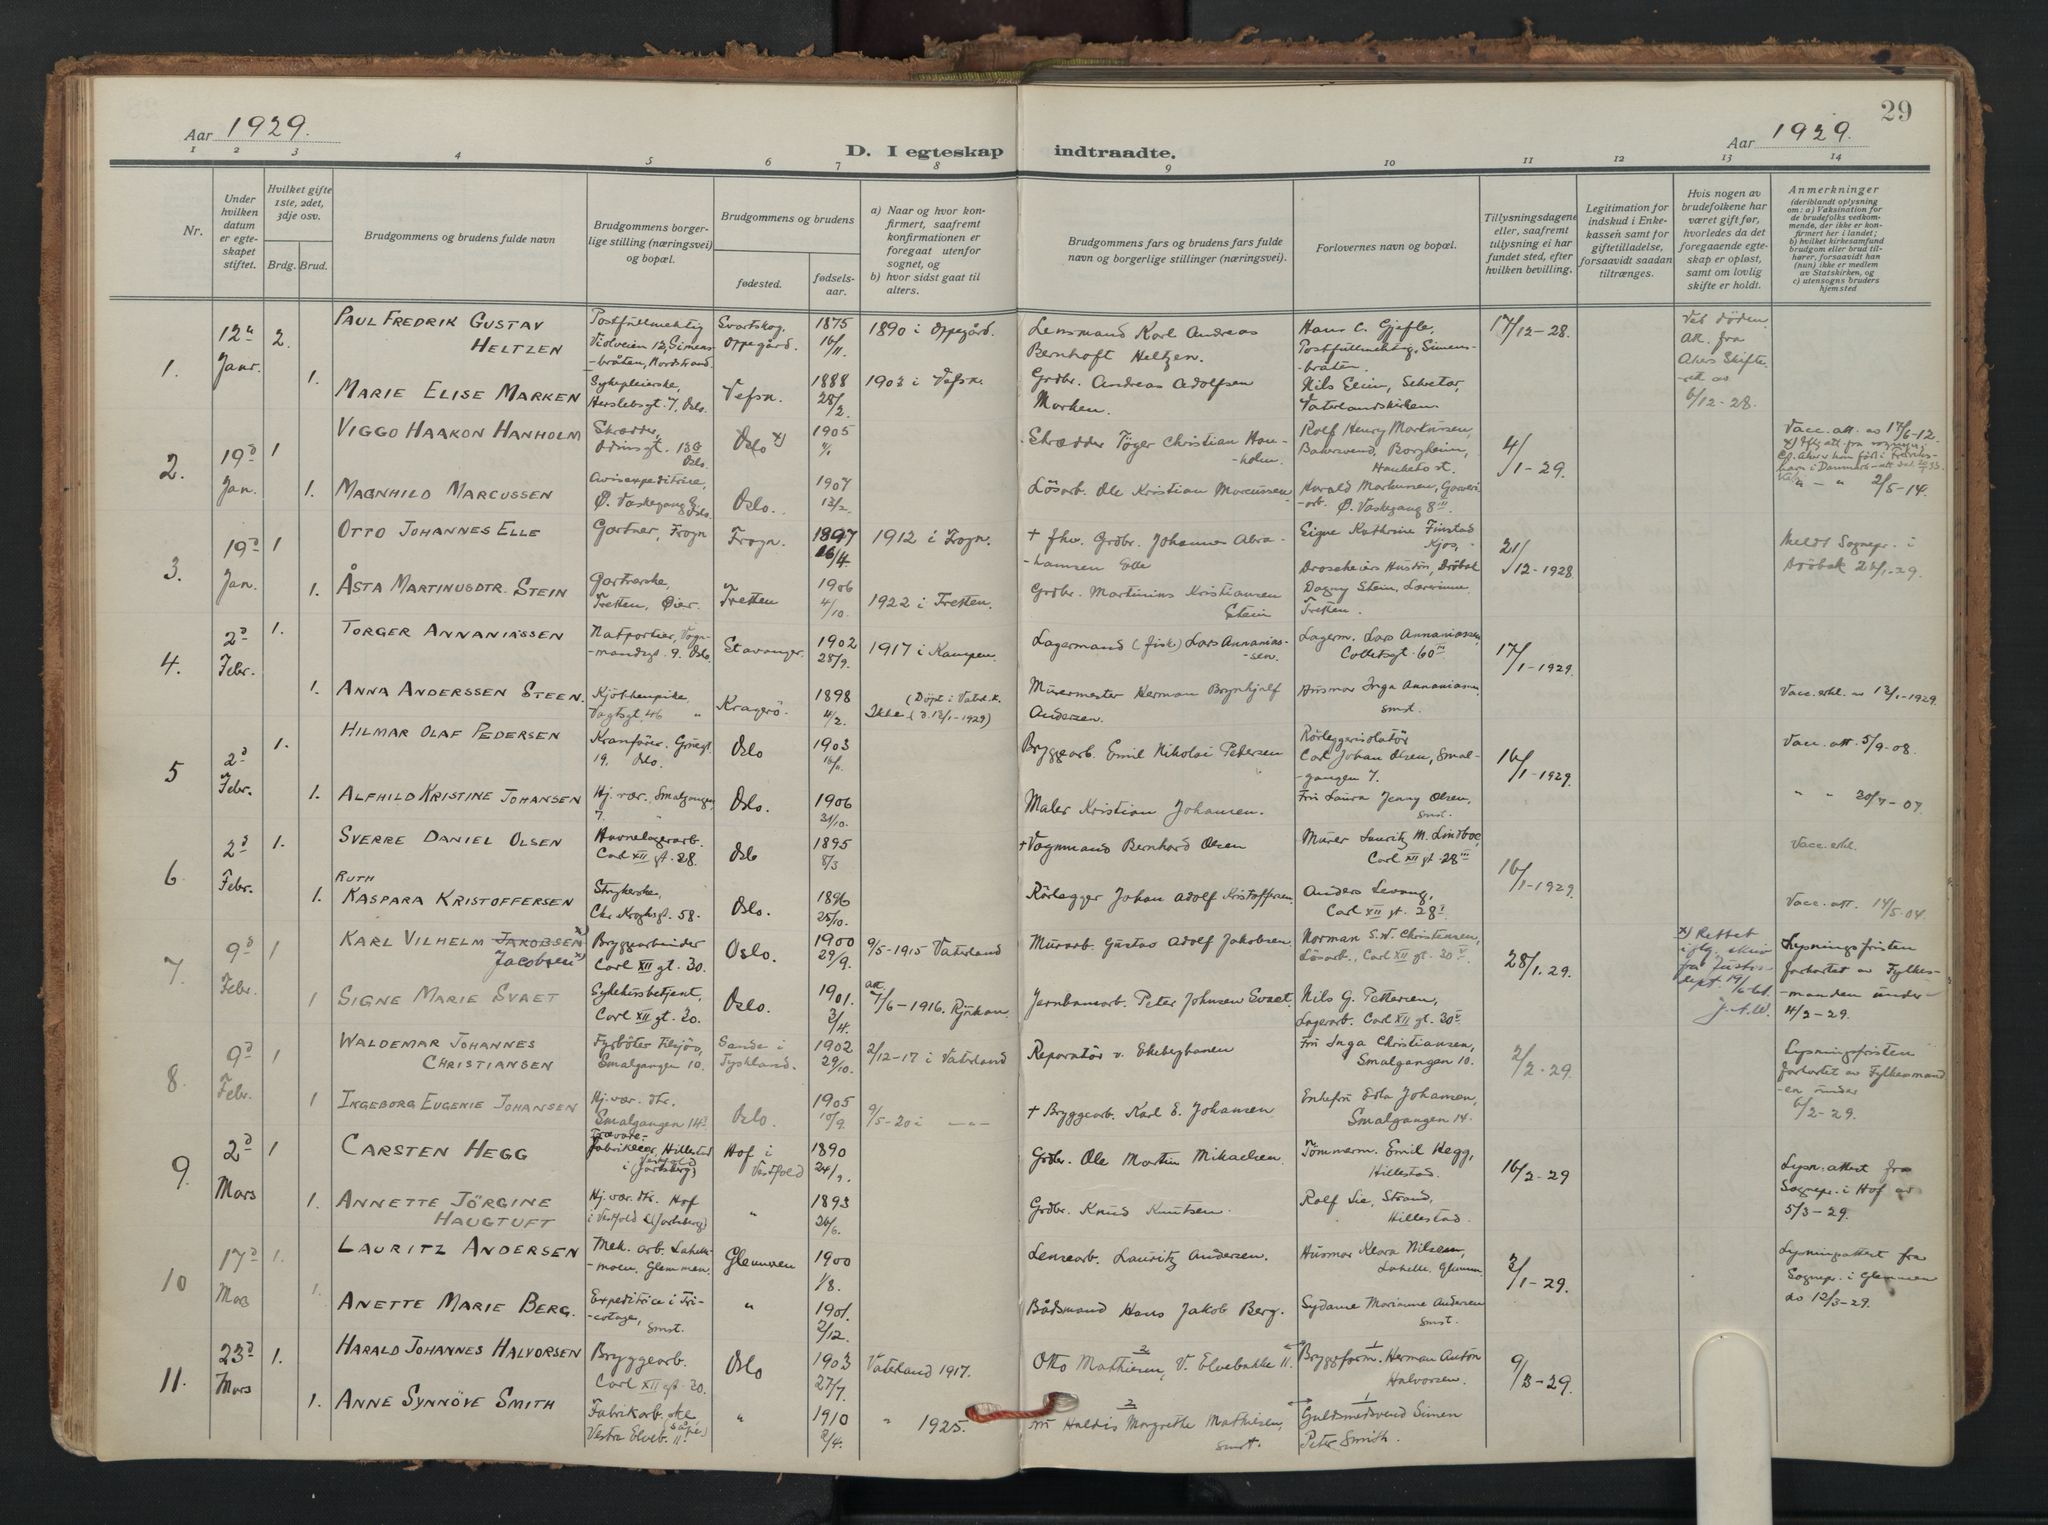 29
Aar 1929.
Aar 1929.
D. I egteskap indtraadte.
1 2 3 4 5 6 7 8 9 10 11 12 13 14
Nr.
Under hvilken datum er egteskapet stiftet.
Hvilket gifte 1ste, 2det, 3dje osv.
Brdg. Brud.
Brudgommens og brudens fulde navn
Brudgommens borgerlige stilling (næringsvei) og bopæl.
Brudgommens og brudens
fødested.
fødselsaar.
a) Naar og hvor konfirmert, saafremt konfirmationen er foregaat utenfor sognet, og
b) hvor sidst gaat til alters.
Brudgommens fars og brudens fars fulde navn og borgerlige stillinger (næringsvei).
Forlovernes navn og bopæl.
Tillysningsdagene eller, saafremt tillysning ei har fundet sted, efter hvilken bevilling.
Legitimation for indskud i Enkekassen samt for giftetilladelse, forsaavidt saadan tiltrænges.
Hvis nogen av brudefolkene har været gift før, hvorledes da det foregaaende egteskap er opløst, samt om lovlig skifte er holdt.
Anmerkninger
(deriblandt oplysning om: a) Vaksination for de brudefolks vedkommende, der ikke er konfirmert her i landet; b) hvilket kirkesamfund brudgom eller brud tilhører, forsaavidt han (hun) ikke er medlem av Statskirken, og c) utensogns bruders hjemsted
1. 12te Janr. 2. PAUL FREDRIK GUSTAV HELTZEN Postfullmektig Violveien 12, Simensbråten, Nordstrand. Svartskog. Oppegård. 1875 16/11 1890 i Oppegård. Lensmand Karl Andreas Bernhoft Heltzen. Hans C. Gjefle, Postfullmektig, Simensbråten. 17/12-28. Ved døden. Att. fra Akers Skifteret av 6/12-28.
1. MARIE ELISE MARKEN Sykepleierske, Herslebsgt. 7, Oslo. Vefsn. 1888 28/2. 1903 i Vefsn. Grdbr. Andreas Adolfsen Marken. Nils Elein, Sekretær, Vaterlandskirken.
2. 19d Jan. 1 VIGGO HAAKON HANHOLM Skrædder, Odinsgt. 13 Oslo. Oslo x) 1905 Skrædder Töger Christian Hanholm. Rolf Henry Markussen, Borgheim, 4/1-29. Vacc. att. av 17/6-12.
1. MAGNHILD MARCUSSEN Avisexpeditrice, Ø. Vaskegang 8, Oslo. Oslo. 1907 13/2. Lösarb. Ole Kristian Marcussen. Harald Markussen, Ø. Vaskegang 8 III " - " 2/5-14.
3. 19d Jan. 1 OTTO JOHANNES ELLE Gartner, Frogn Frogn. 1897 26/4 1912 i Frogn. + fhv. Grdbr. Johannes Abrahamsen Elle Signe Kathrine Finstad Kjos, Droscheiers Hustru, Dröbak 21/12-1928. Meldt Sognepr. i Dröbak 24/1-29.
1. ÅSTA MARTINUSDTR. STEIN Gartnerske, Tretten, Øier. Tretten 1906 4/10. 1922 i Tretten. Grdbr. Martinius Kristiansen Stein Dagny Stein, Lærerinne, Tretten.
4. 2d Febr. 1. TORGER ANNANIASSEN Natportier, Vognmandsgt. 9. Oslo. Stavanger. 1902 28/9. 1917 i Kampen. Lagermand (fisk) Lars Annaniassen. Lagerm. Lars Annaniassen, Colletsgt. 60 III 17/1-1929.
1. ANNA ANDERSSEN STEEN. Kjökkenpike, Vogtsgt. 46 " Kragerö. 1898 11/2. Ikke (Döpt i Vaterl. k. d. 13/1-1929) Murermester Herman Brynhjulf Andersen. Husmor Inga Annaniassen smst. Vacc. erkl. av 13/1-1929.
5 2d Febr. 1. HILMAR OLAF PEDERSEN Kranfører, Grüegt. 19. Oslo. Oslo 1903 16/11. Bryggearb. Emil Nikolai Petersen Rørleggerisolatör Carl Johan Olsen, Smalgangen 7. 16/1-1929. Vacc. att. 5/9-08.
1. ALFHILD KRISTINE JOHANSEN Hj. vær. Smalgangen 7. " Oslo. 1906 31/10. Maler Kristian Johansen. Fru Laura Jenny Olsen, smst. " " 30/7-07.
6 2d Febr. 1. SVERRE DANIEL OLSEN Havnelagerarb. Carl XII gt. 28. Oslo 1895 8/3 + Vognmand Bernhard Olsen Murer Lauritz M. Lindboe, Carl XII gt. 28 III 16/1-1929. Vacc. erkl.
1. RUTH KASPARA KRISTOFFERSEN Strykerske, Chr. Kroghsgt. 58. Oslo. 1896 25/10. Rörlegger Johan Adolf Kristoffersen. Anders Levang, Carl XII gt. 28 I Vacc. att. 14/5-04.
7. 9d Febr. 1 KARL VILHELM JAKOBSEN x) Jacobsen x) Bryggearbeider Carl XII gt. 30. Oslo. 1900 29/9. 9/5-1915 Vaterland Murarb. Gustav Adolf Jakobsen. Norman S. W. Christensen, Lösarb., Carl XII gt. 30 V 28/1.29. x) Rettet iflg. skriv fra Justisdept. 19/6-61 Lysningsfristen forkortet av Fylkesmanden under 4/2-29.
1 SIGNE MARIE SVAET Sykehusbetjent, Carl XII gt. 30. Oslo. 1901. 3/4. att. 7/6-1916. Rjukan. Jernbanearb. Peter Johnsen Svaet. Nils G. Pettersen, Lagerarb. Carl XII gt. 30 V
8. 9d Febr. 1 WALDEMAR JOHANNES CHRISTIANSEN Fyrböter Smalgangen 10. Sande i Tyskland. 1902 29/10. 2/12-17 i Vaterland Reparatör v. Ekebergbanen Fru Inga Christiansen, Smalgangen 10. 2/2-29. Lysningsfristen forkortet av Fylkesmanden under 6/2-29.
1 INGEBORG EUGENIE JOHANSEN Hj. vær. dtr. Smalgangen 14 Oslo. 1905 10/9. 9/5-20 i -"- + Bryggearb. Karl E. Johansen Enkefru Erla Johansen, Smalgangen 14.
9. 2d Mars 1 CARSTEN HEGG Trævarefabrikeier, Hillestad i Vestfold (Jarlsberg) Hof i Vestfold 1890 24/9. Grdbr. Ole Martin Mikaelsen. Tömmerm. Emil Hegg, Hillestad. 16/2-29 Lysn. attest fra Sognepr. i Hof av 5/3-29.
1. ANNETTE JÖRGINE HAUGTUFT Hj. vær. dtr. Hof i Vestfold (Jarlsberg) " 1893 26/6. Grdbr. Knud Knutsen. Rolf Lie, Strand, Hillestad.
10 17d Mars 1. LAURITZ ANDERSEN Mek. arb. Lahellemoen, Glemmen. Glemmen 1900 1/8. Lensearb. Lauritz Andersen. Husmor Klara Nilsen, Lahelle, Glemm. 3/1-29. Lysningsattest fra Sognepr. i Glemmen av 12/3-29.
1. ANETTE MARIE BERG. Expeditrice i Tricotage, smst. " 1901. 2/12. Båtsmand Hans Jakob Berg. Sydame Marianne Andersen smst.
11. 23d Mars 1. HARALD JOHANNES HALVORSEN Bryggearb. Carl XII gt. 20. Oslo 1903 27/7. Vaterland 1917. 2 Otto Mathiesen, V. Elvebakke 11. 1 Bryggeform. Herman Anton Halvorsen. 9/3-29.
1. ANNE SYNNÖVE SMITH Fabrikarb.ske (såpe) Vestre Elveb. 11. " 1910 2/4. " 1925. 2 Fru Haldis Margrethe Mathiesen, smst. 1 Guldsmedsvend Simen Peter Smith.